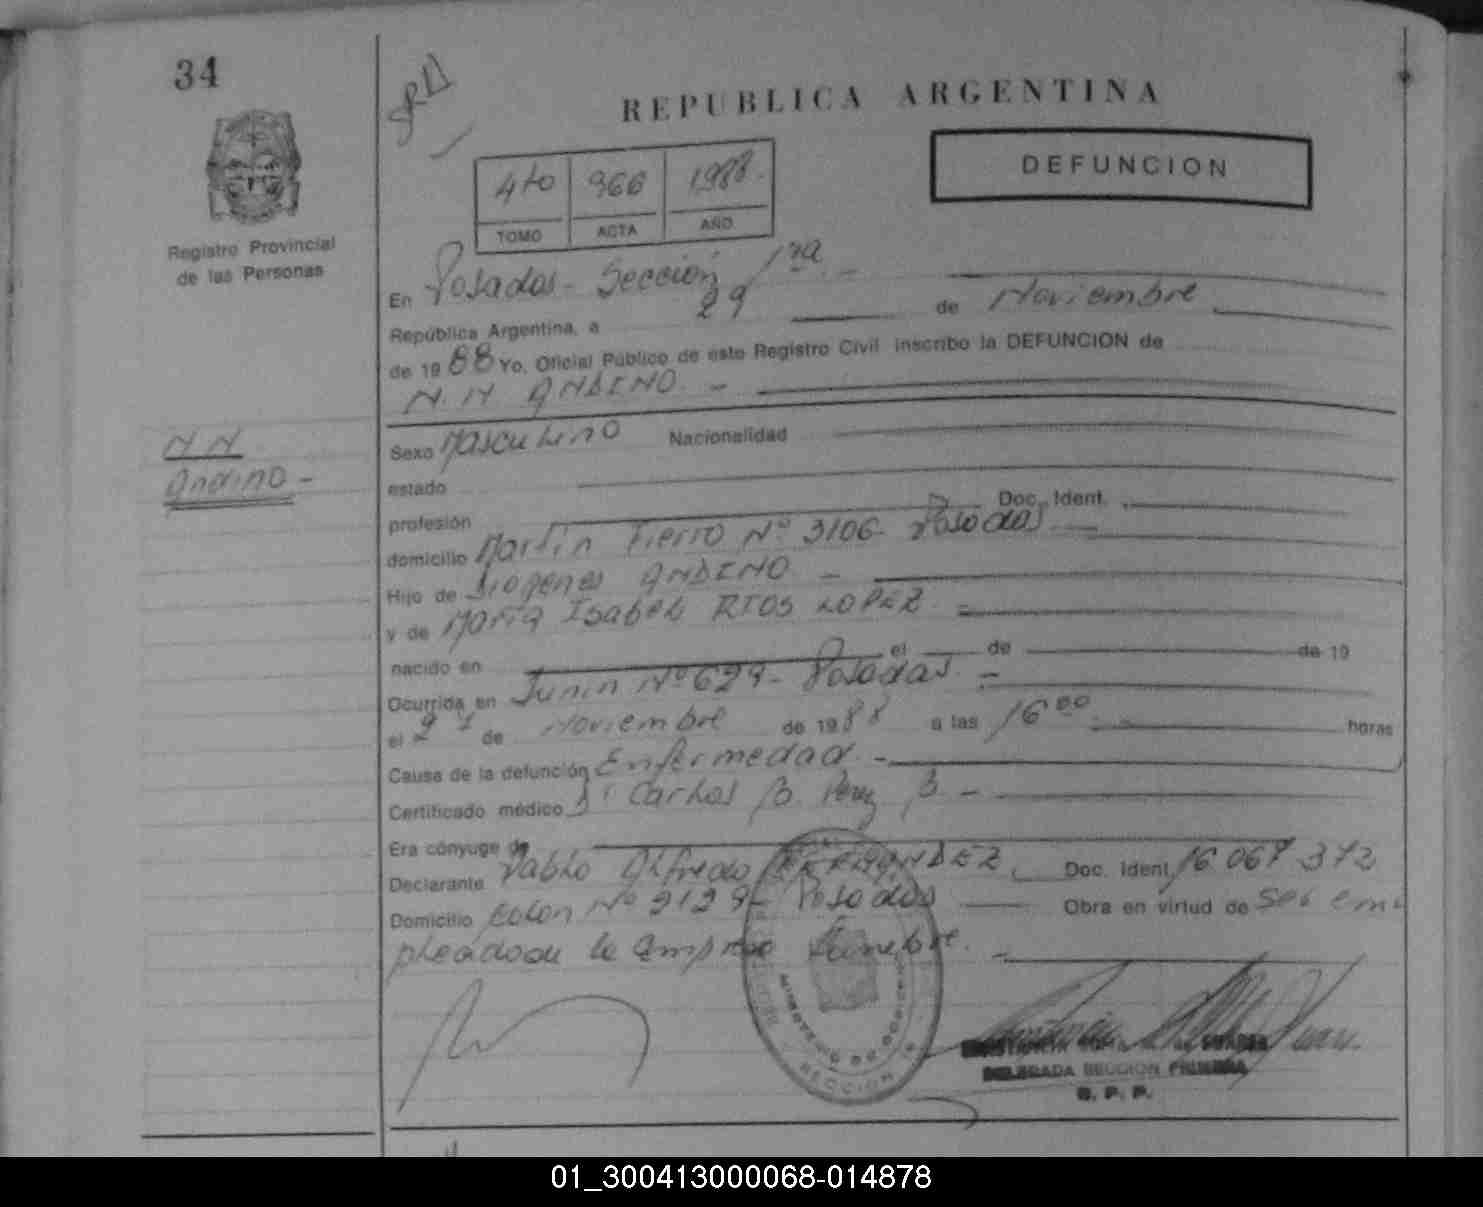 34
REPUBLICA ARGENTINA
DEFUNCION
4to 966 1988.
TOMO ACTA AÑO
Registro Provincial
de las Personas
En Posadas - Sección 1ra -
República Argentina, a 29 de Noviembre
de 1988 Yo, Oficial Público de este Registro Civil inscribo la DEFUNCION de
N.N ANDINO. -
N N
Andino -
Sexo Masculino Nacionalidad
estado
profesión Doc. Ident.
domicilio Martín Fierro Nº 3106 - Posadas
Hijo de Diogenes ANDINO -
y de María Isabel RIOS LOPEZ
nacido en el de de 19
Ocurrida en Junin Nº 629 - Posadas. -
el de Noviembre de 1988 a las 16 00 horas
Causa de la defunción Enfermedad. -
Certificado médico Dr Carlos B. Perez B. -
Era cónyuge de
Declarante Pablo Alfredo Doc. Ident. 16 067 372
Domicilio Colon Nº 2129 - Posadas Obra en virtud de ser em
pleado de la Empresa Funebre.
MINISTERIO DE GOBIERNO
SECCION 1a
DELEGADA SECCION PRIMERA
R. P. P.
01_300413000068-014878